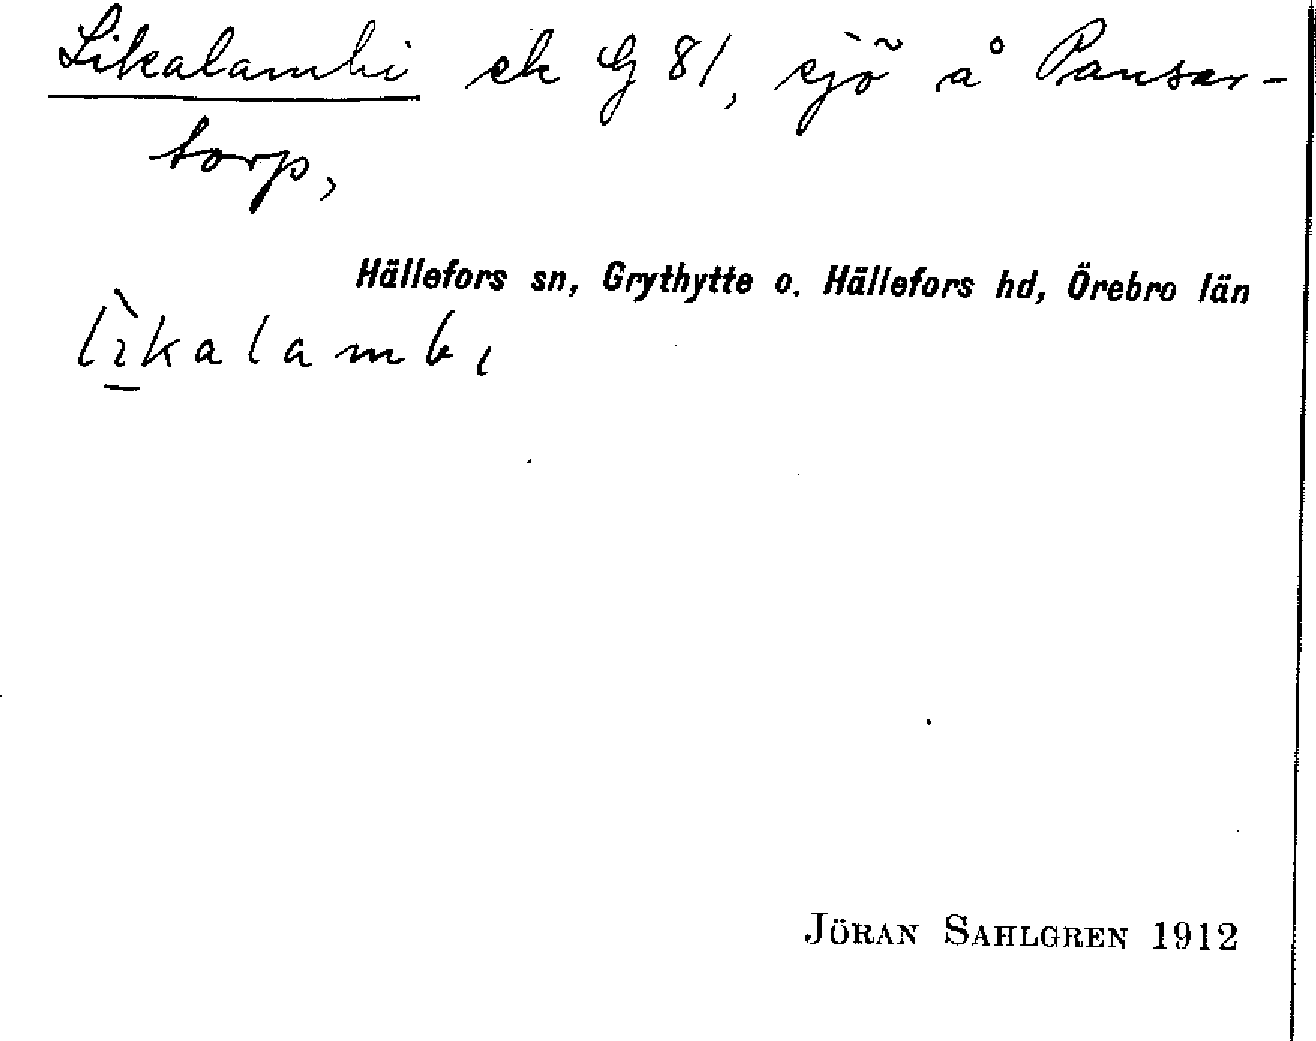 Likalambi ek G 81, sjö å Pansar-
torp,
Hällefors sn, Grythytte o. Hällefors hd, Örebro län
lìkalambi
JÖRAN SAHLGREN 1912